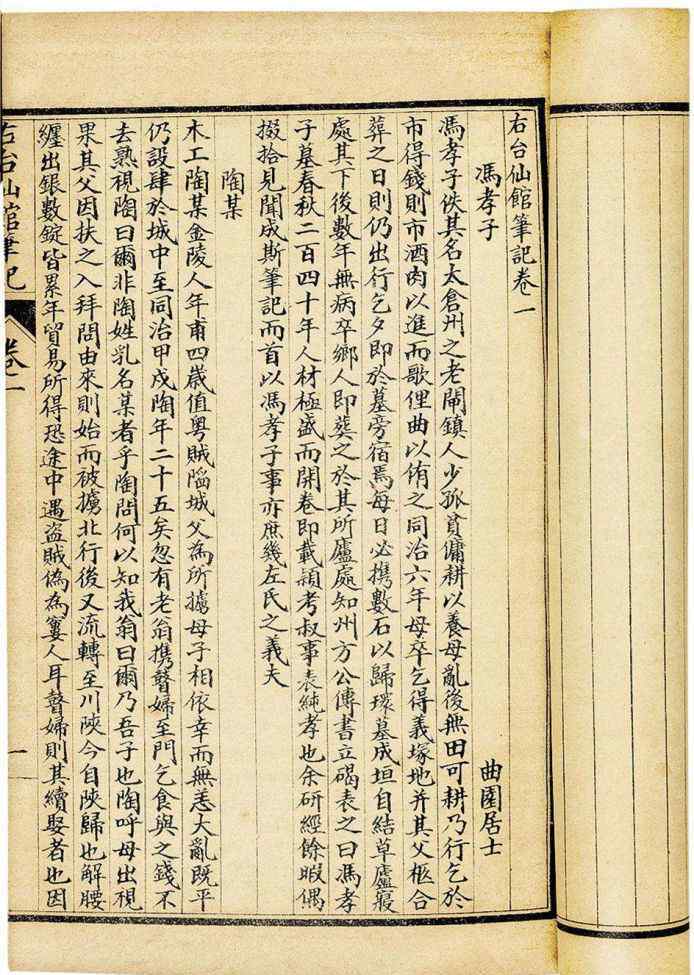 右台仙館筆記卷一
曲園居士
馮孝子
馮孝子佚其名太倉州之老閘鎮人少孤貧傭耕以養母亂後無田可耕乃行乞於
市得錢則市酒肉以進而歌俚曲以侑之同治六年母卒乞得義塚地并其父柩合
葬之日則仍出行乞夕即於墓旁宿焉每日必携數石以歸環墓成垣自結草廬寢
處其下後數年無病卒鄉人即葬之於其所廬處知州方公傳書立碣表之曰馮孝
子墓春秋二百四十年人材極盛而開卷即載潁考叔事表純孝也余研經餘暇偶
掇拾見聞成斯筆記而首以馮孝子事亦庶幾左氏之義夫
陶某
木工陶某金陵人年甫四歲值粵賊陷城父為所擄母子相依幸而無恙大亂既平
仍設肆於城中至同治甲戌陶年二十五矣忽有老翁携瞽婦至門乞食與之錢不
去熟視陶曰爾非陶姓乳名某者乎陶問何以知我翁曰爾乃吾子也陶呼母出視
果其父因扶之入拜問由來則始而被擄北行後又流轉至川陝今自陝歸也解腰
纏出銀數錠皆累年貿易所得恐途中遇盜賊偽為窶人耳瞽婦則其續娶者也因
右台仙館筆記
卷一
一